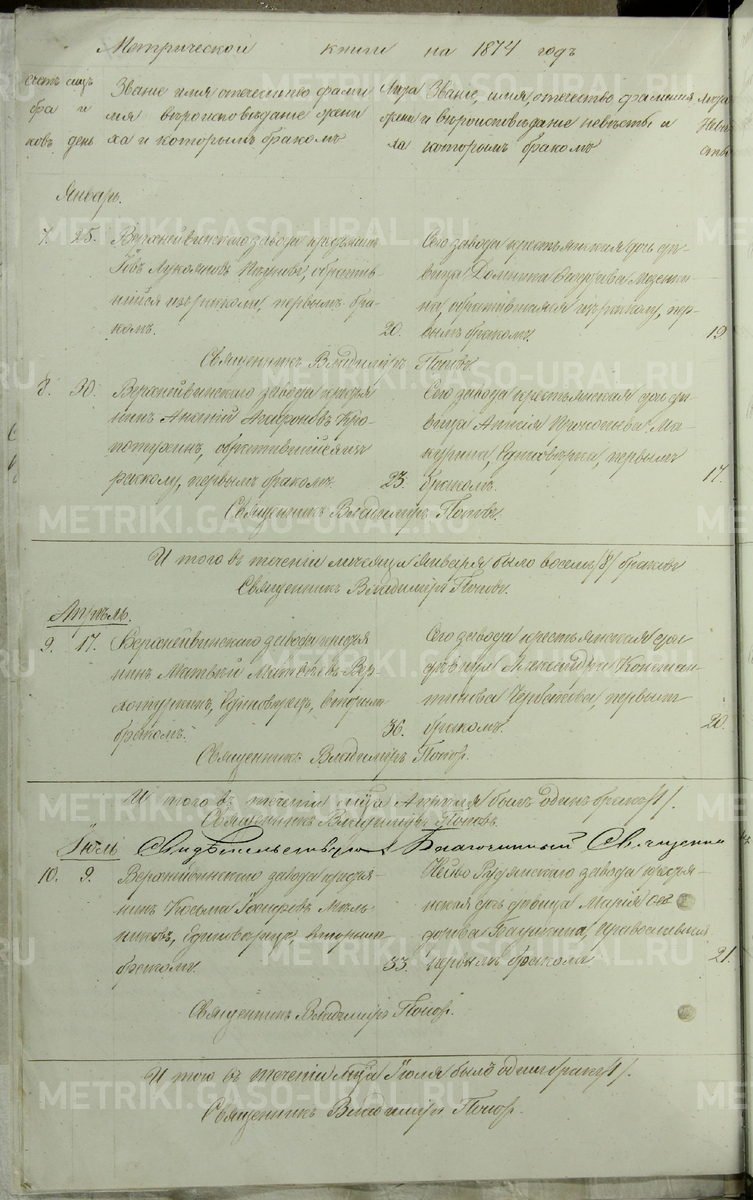 Метрической книги на 1874 годъ
Счетъ бра ковъ
и день
Званіе имя отечество фами
лія вѣроисповѣданіе жени
ха и которымъ бракомъ
Лѣта жени ха
Званіе, имя, отечество фамилия
и вѣроисповѣданіе невѣсты и
которымъ бракомъ
Лѣта Невѣ сты
Январь.
7. 25.
завода
Лукояновъ обратив
шійся изъ раскола, первымъ бра-
комъ.
20.
Сего завода крестьянская дочь дѣ-
вица Домника
обратившаяся изъ раскола, пер-
вымъ бракомъ.
19.
Священникъ Владимиръ Поповъ.
8. 30.
Верхнейвинскаго завода крестья
нинъ
обратившійся изъ
расколу, первымъ бракомъ.
23.
Сего завода крестьянская дочь дѣ-
вица Анисія Прокопьева Ма-
курина, Единовѣрка, первымъ
бракомъ.
17.
Священникъ Владимиръ Поповъ.
И того въ теченіи мѣсяца Января было восемь /8/ браковъ
Священникъ Владимиръ Поповъ.
Апрѣль.
9. 17.
Верхнейвинскаго завода крестья
нинъ Матвѣй Матвѣевъ Вер-
хотуркинъ, Единовѣрецъ, вторымъ
бракомъ.
36.
Сего завода крестьянская дочь
дѣвица Александра Констан-
тинова первымъ
бракомъ.
20.
Священникъ Владимиръ Попов.
И того въ теченіи мѣсяца Апрѣля былъ одинъ бракъ /1/.
Священникъ Владимиръ Поповъ.
Свидѣтельствую Благочинный Священни
Іюль
10. 9.
Верхнейвинскаго завода крестья-
нинъ Косьма Іосифовъ Мель-
никовъ, Единовѣрецъ, вторымъ
бракомъ.
33.
Нейво Рудянскаго завода крестья-
нская дочь дѣвица Марія
Православная
первымъ бракомъ
21.
Священникъ Владимиръ Попов.
И того въ теченіи М-ца Іюля былъ одинъ бракъ /1/.
Священникъ Владимиръ Попов.
METRIKI.GASO-URAL.RU